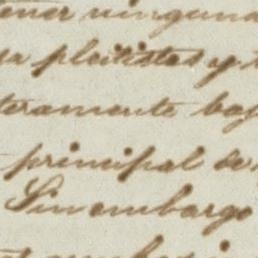 tener ninguna
pleitistas y
teramente baj
principal de
Sin embargo